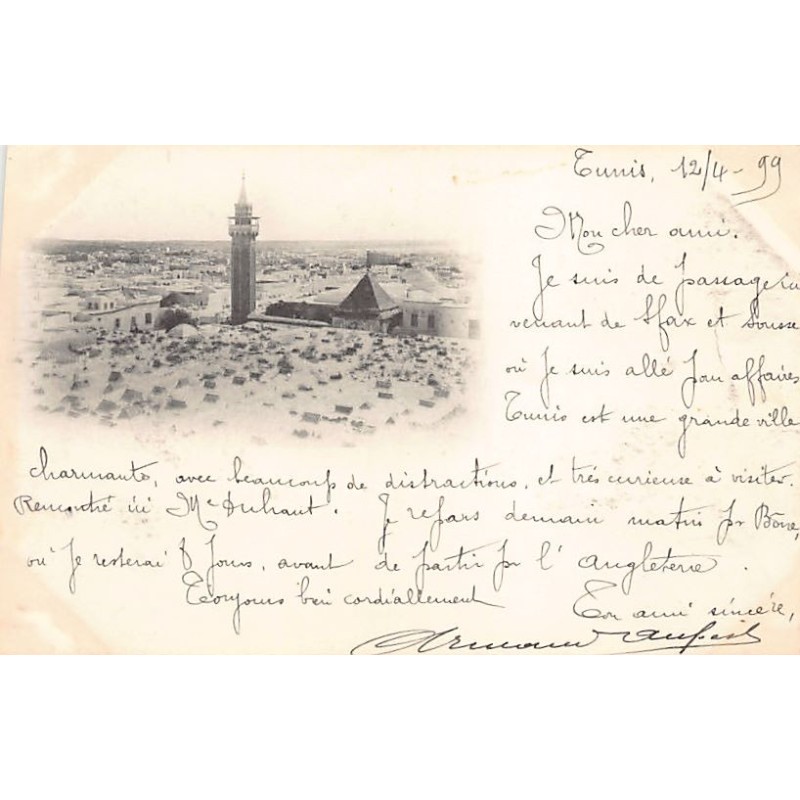 Tunis, 12/4-99
Mon cher ami.
Je suis de passage ici
venant de Sfax et Sousse
où Je suis allé pour affaires
Tunis est une grande ville
charmante, avec beaucoup de distractions, et très curieuse à visiter.
Rencontré ici Mr Duhaut. Je repars demain matin pr Bône,
où Je resterai 8 Jours, avant de partir pr l'Angleterre.
Toujours bien cordiallement
Ton ami sincère,
Armand